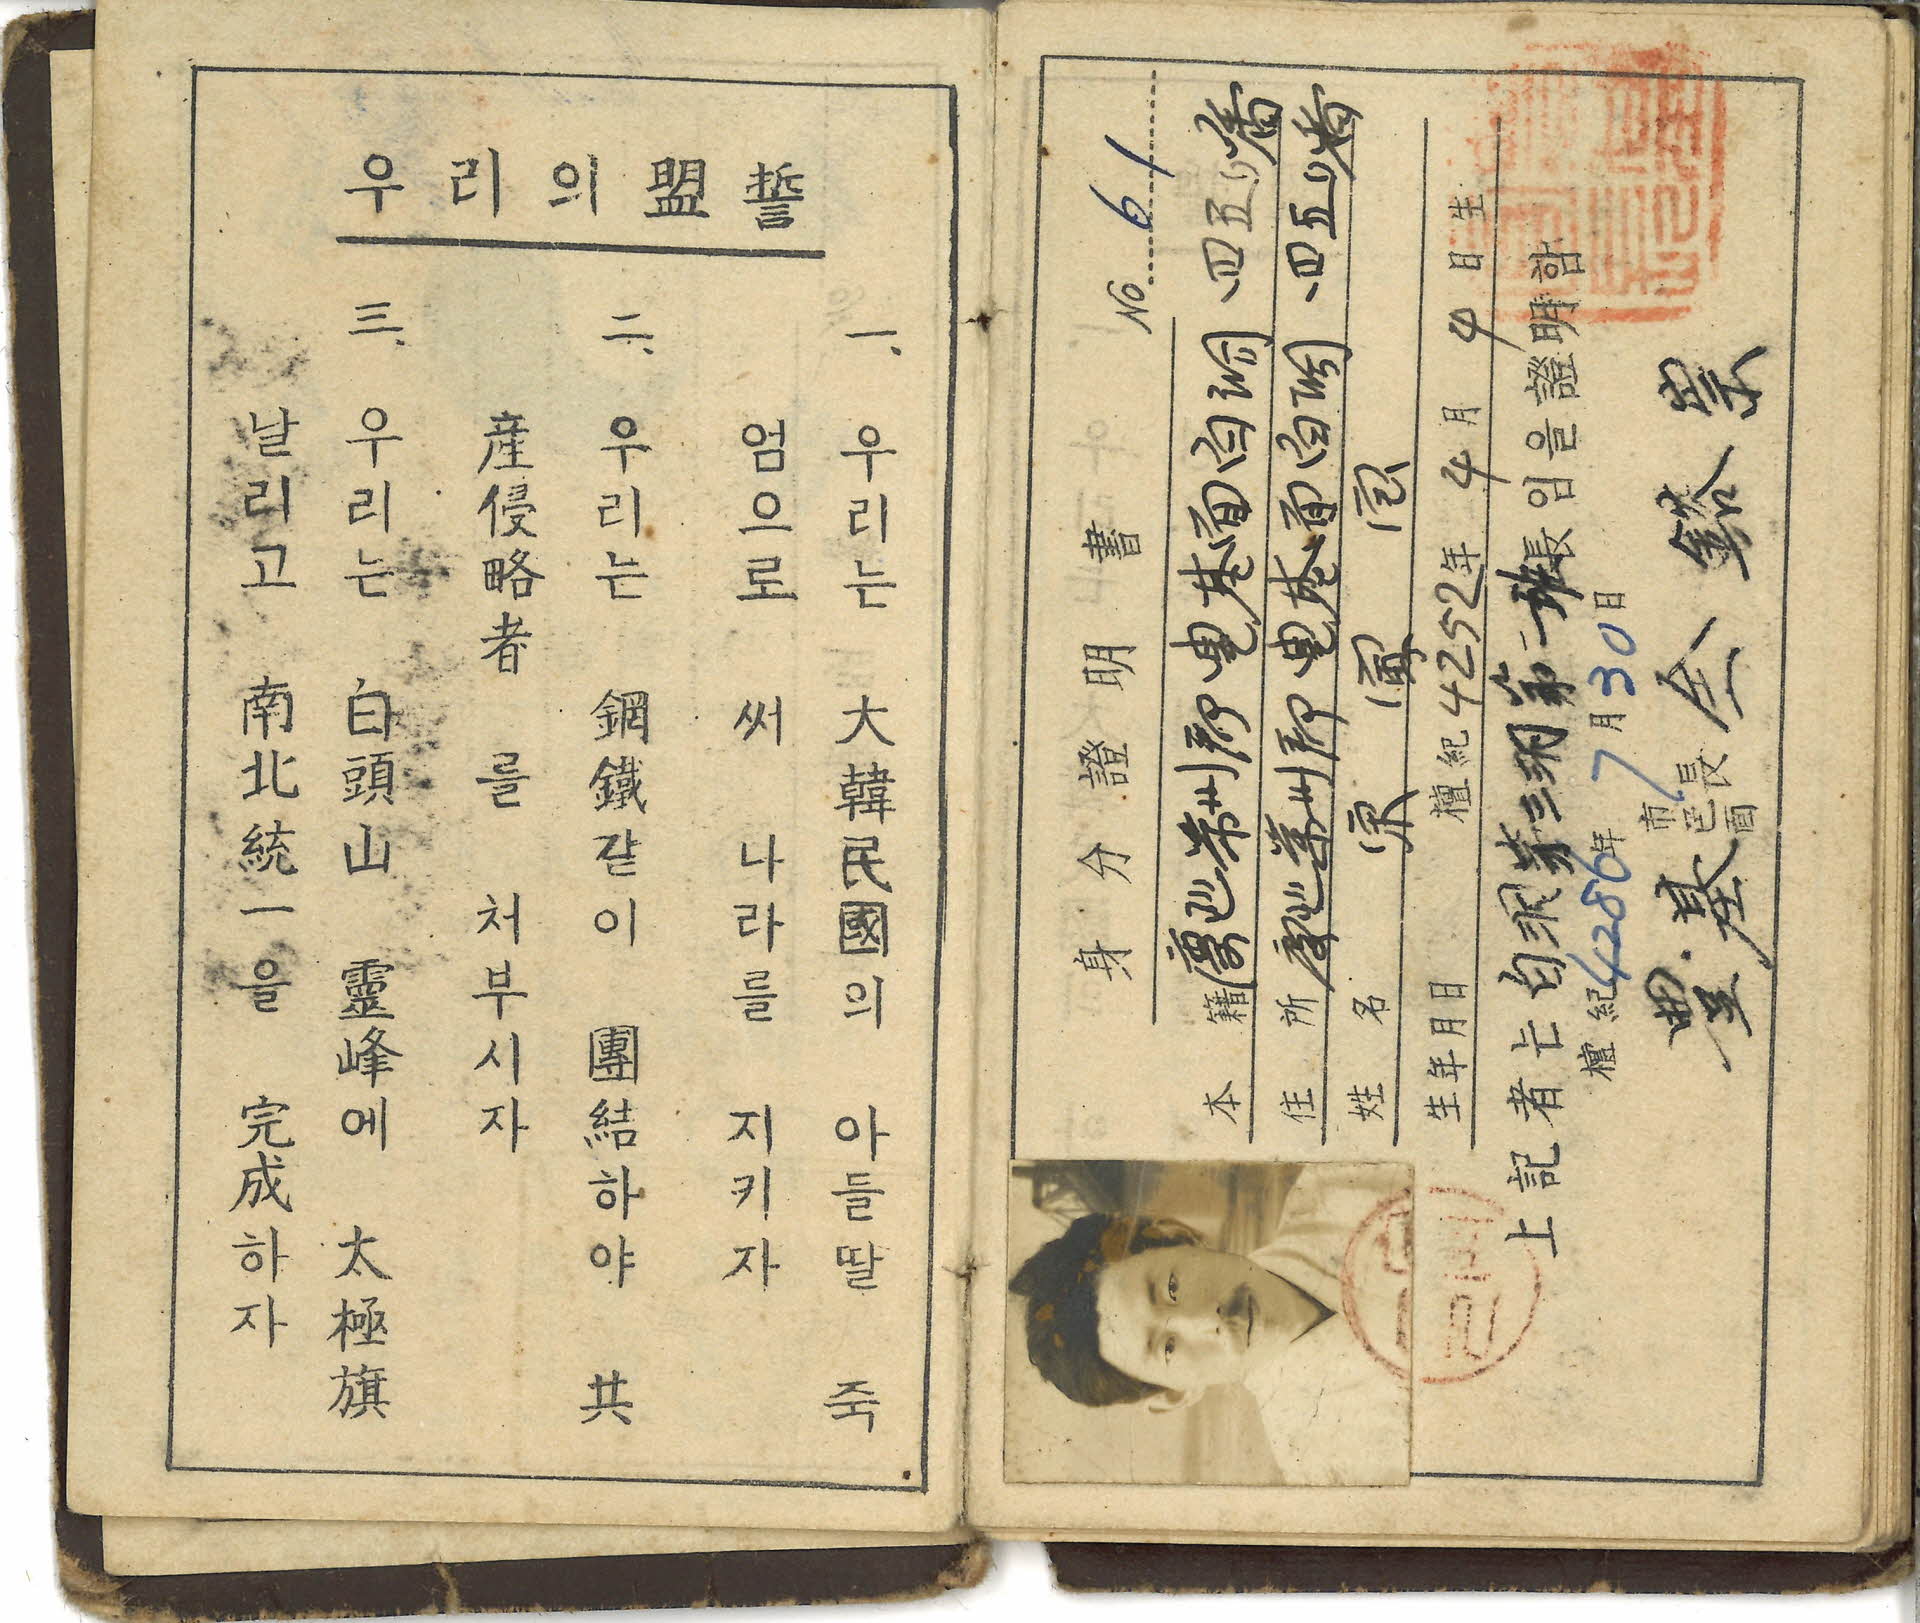 우리의 盟誓
一. 우리는 大韓民國의 아들딸 죽
엄으로 써 나라를 지키자
二. 우리는 鋼鐵같이 團結하야 共
産侵略者를 처부시자
三. 우리는 白頭山 靈峰에 太極旗
날리고 南北統一을 完成하자
No 61
身分證明書
本籍 慶北榮州郡 基面 四五 番
住所 慶北榮州郡 基面 四五 番
姓名 宋
生年月日 檀紀 4252年 4月 4日生
上記者는 第三 第一班長임을證明함
檀紀4286年 7月 30日
基 市邑面長 金